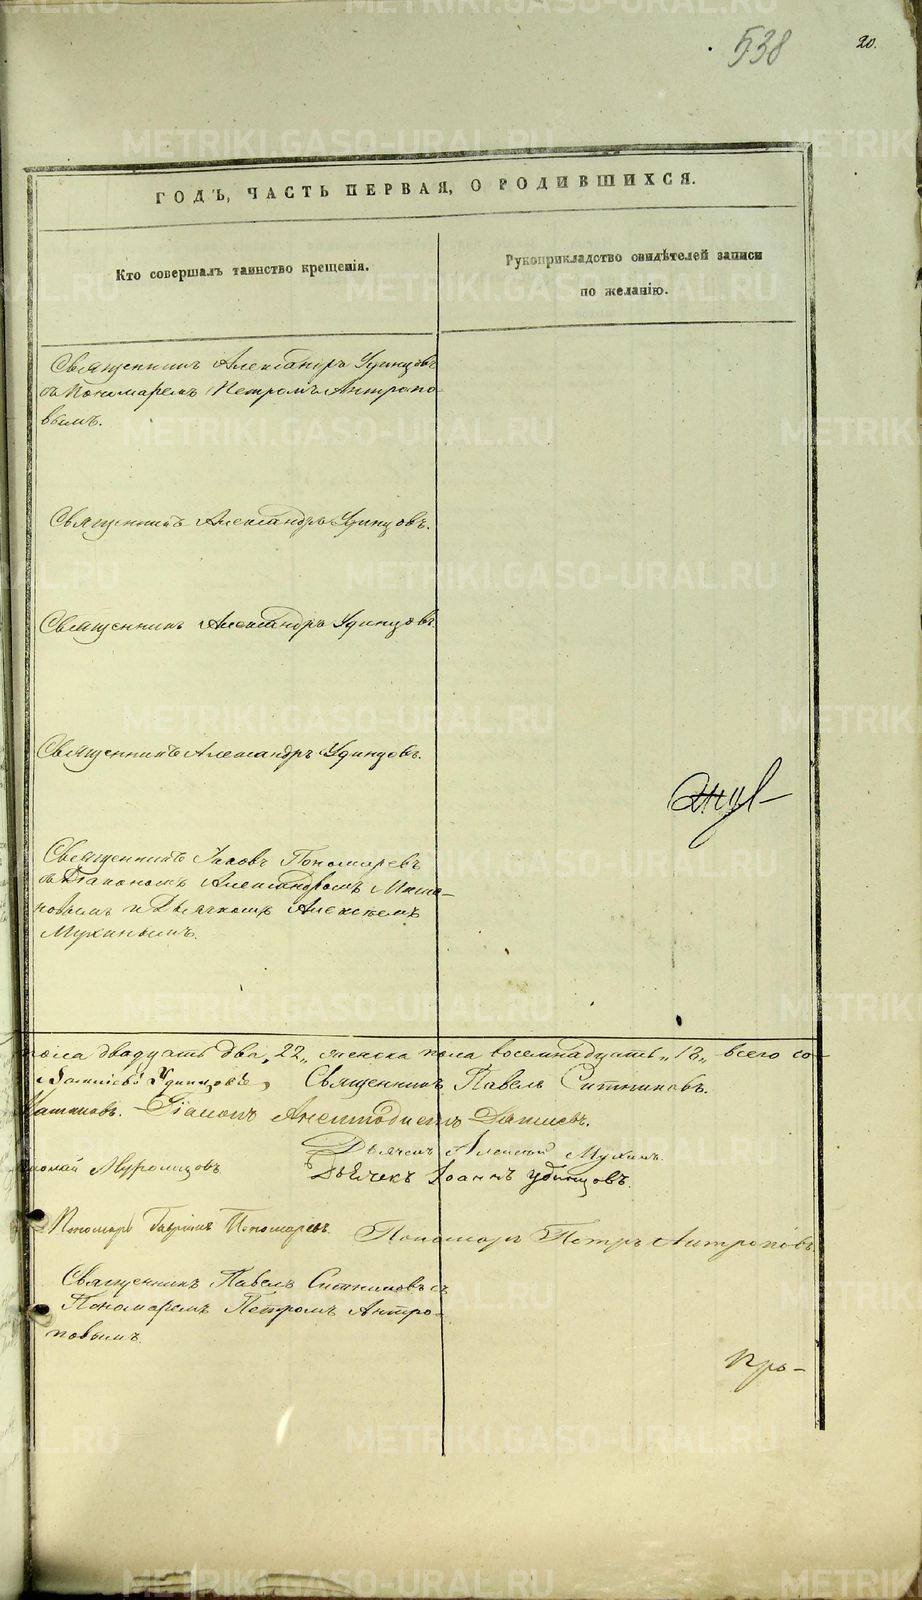 538
20.
ГОДЪ, ЧАСТЬ ПЕРВАЯ, О РОДИВШИХСЯ.
Кто совершалъ таинство крещенія.
Рукоприкладство свидѣтелей записи
по желанію.
Священникъ Александръ Удинцовъ
съ Пономаремъ Петромъ Антропо-
вымъ.
Священникъ Александръ Удинцовъ.
Священникъ Александръ Удинцовъ.
Священникъ Александръ Удинцовъ.
Священникъ Іаковъ Пономаревъ
съ Діакономъ Александромъ
и Дьячкомъ Алексѣемъ
Мухинымъ.
пола двадцать два „22„ женска пола восемнадцать „18„ всего со-
Удинцовъ, Священникъ Павелъ Ситниковъ.
Діаконъ
Дьячекъ Алексѣй Мухинъ.
Муромцовъ Дьячекъ Іоаннъ Удинцовъ.
Пономарь Гавріилъ Пономаревъ. Пономарь Петръ Антроповъ
Священникъ Павелъ Ситниковъ съ
Пономаремъ Петромъ Антро-
повымъ.
METRIKI.GASO-URAL.RU